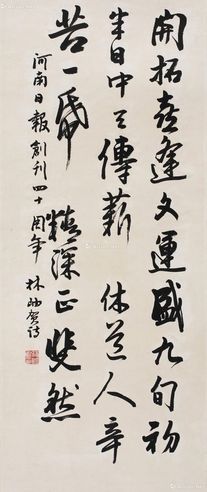 開拓喜逢文運盛九旬初
半日中天傳薪休道人辛
苦一帋精深正斐然
河南日報創刊四十周年
林岫賀詩